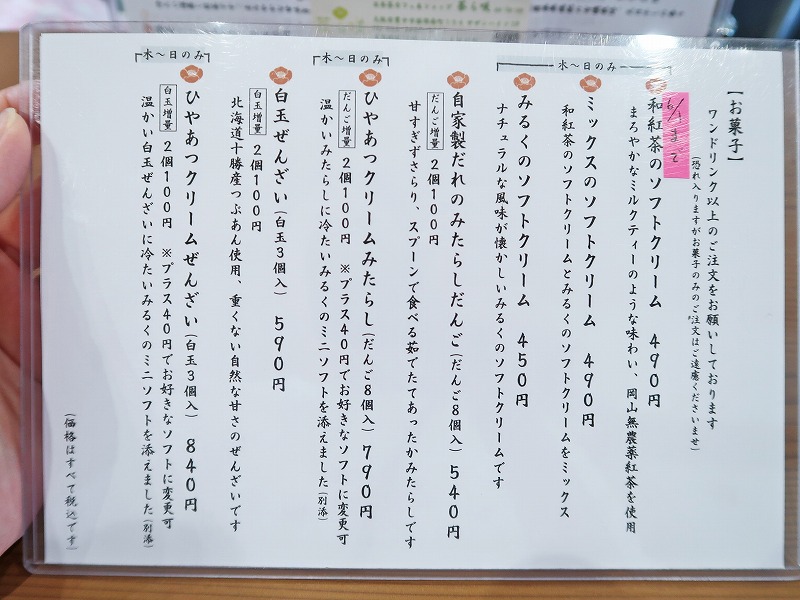 【お菓子】
ワンドリンク以上のご注文をお願いしております
(恐れ入りますがお菓子のみのご注文はご遠慮くださいませ)
木〜日のみ
6/1まで
和紅茶のソフトクリーム 490円
まろやかなミルクティーのような味わい、岡山無農薬紅茶を使用
ミックスのソフトクリーム 490円
和紅茶のソフトクリームとみるくのソフトクリームをミックス
みるくのソフトクリーム 450円
ナチュラルな風味が懐かしいみるくのソフトクリームです
自家製だれのみたらしだんご(だんご8個入) 540円
だんご増量 2個100円
甘すぎずさらり、スプーンで食べる茹でたてあったかみたらしです
木〜日のみ
ひやあつクリームみたらし(だんご8個入) 790円
だんご増量 2個100円 ※プラス40円でお好きなソフトに変更可
温かいみたらしに冷たいみるくのミニソフトを添えました(別添)
白玉ぜんざい(白玉3個入) 590円
白玉増量 2個100円
北海道十勝産つぶあん使用、重くない自然な甘さのぜんざいです
木〜日のみ
ひやあつクリームぜんざい(白玉3個入) 840円
白玉増量 2個100円 ※プラス40円でお好きなソフトに変更可
温かい白玉ぜんざいに冷たいみるくのミニソフトを添えました(別添)
(価格はすべて税込です)